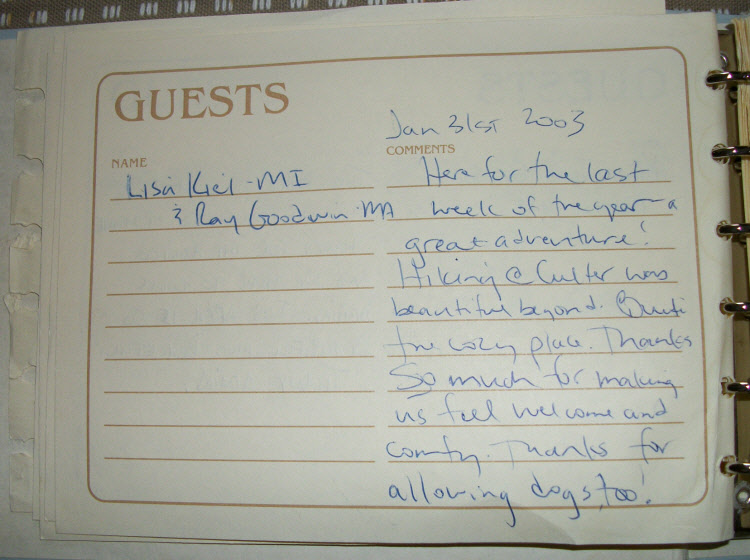 GUESTS
Jan 31st 2003
NAME
COMMENTS
Lisa Kiel - MI
& Ray Goodwin - MA
Here for the last
week of the year - a
great adventure!
Hiking @ Cutler was
beautiful beyond. Quite
the cozy place. Thanks
So much for making
us feel welcome and
comfy. Thanks for
allowing dogs, too!